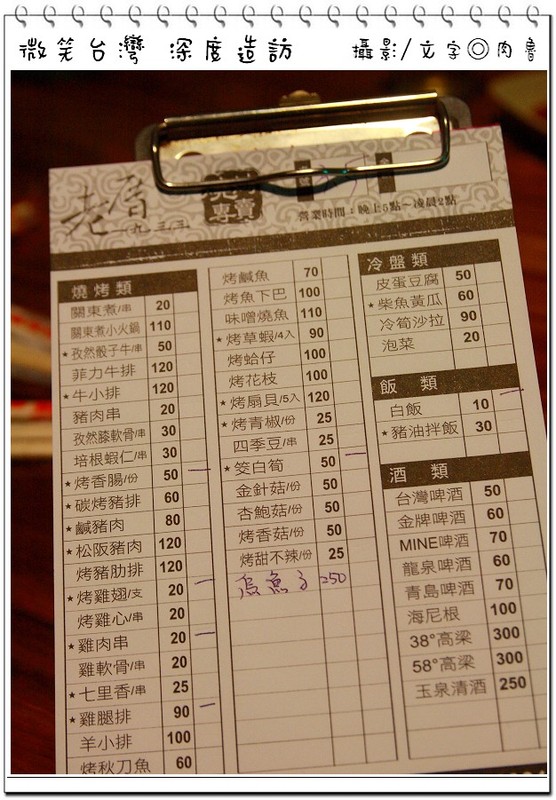 微笑台灣 深度造訪 攝影/文字◎肉魯
老厝
一九三三
專賣
營業時間：晚上5點～凌晨2點
燒烤類
關東煮/串 20
關東煮小火鍋 110
★孜然骰子牛/串 50
菲力牛排 120
★牛小排 120
豬肉串 20
孜然膝軟骨/串 30
培根蝦仁/串 30
★烤香腸/份 50
★碳烤豬排 60
★鹹豬肉 80
★松阪豬肉 120
烤豬肋排 120
★烤雞翅/支 20
烤雞心/串 20
★雞肉串 20
雞軟骨/串 20
★七里香/串 25
★雞腿排 90
羊小排 100
烤秋刀魚 60
烤鹹魚 70
烤魚下巴 100
味噌燒魚 110
★烤草蝦/4入 90
烤蛤仔 100
烤花枝 100
★烤扇貝/5入 120
★烤青椒/份 25
四季豆/串 25
★筊白筍 50
金針菇/份 50
杏鮑菇/份 50
烤香菇/份 50
烤甜不辣/份 25
烏魚子 250
冷盤類
皮蛋豆腐 50
★柴魚黃瓜 60
冷筍沙拉 90
泡菜 20
飯類
白飯 10
★豬油拌飯 30
酒類
台灣啤酒 50
金牌啤酒 60
MINE啤酒 70
龍泉啤酒 60
青島啤酒 70
海尼根 100
38°高粱 300
58°高粱 300
玉泉清酒 250